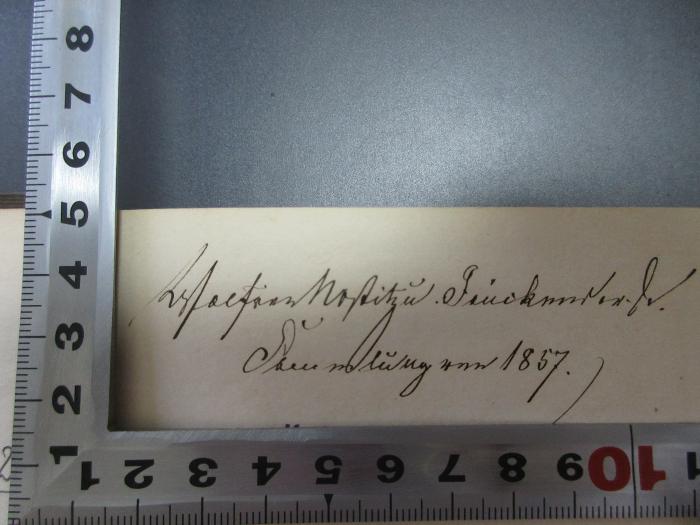 8
7
6
5
4
3
2
1
Nostitz u.
Sammlung von 1857.)
1 2 3 4 5 6 7 8 9 10